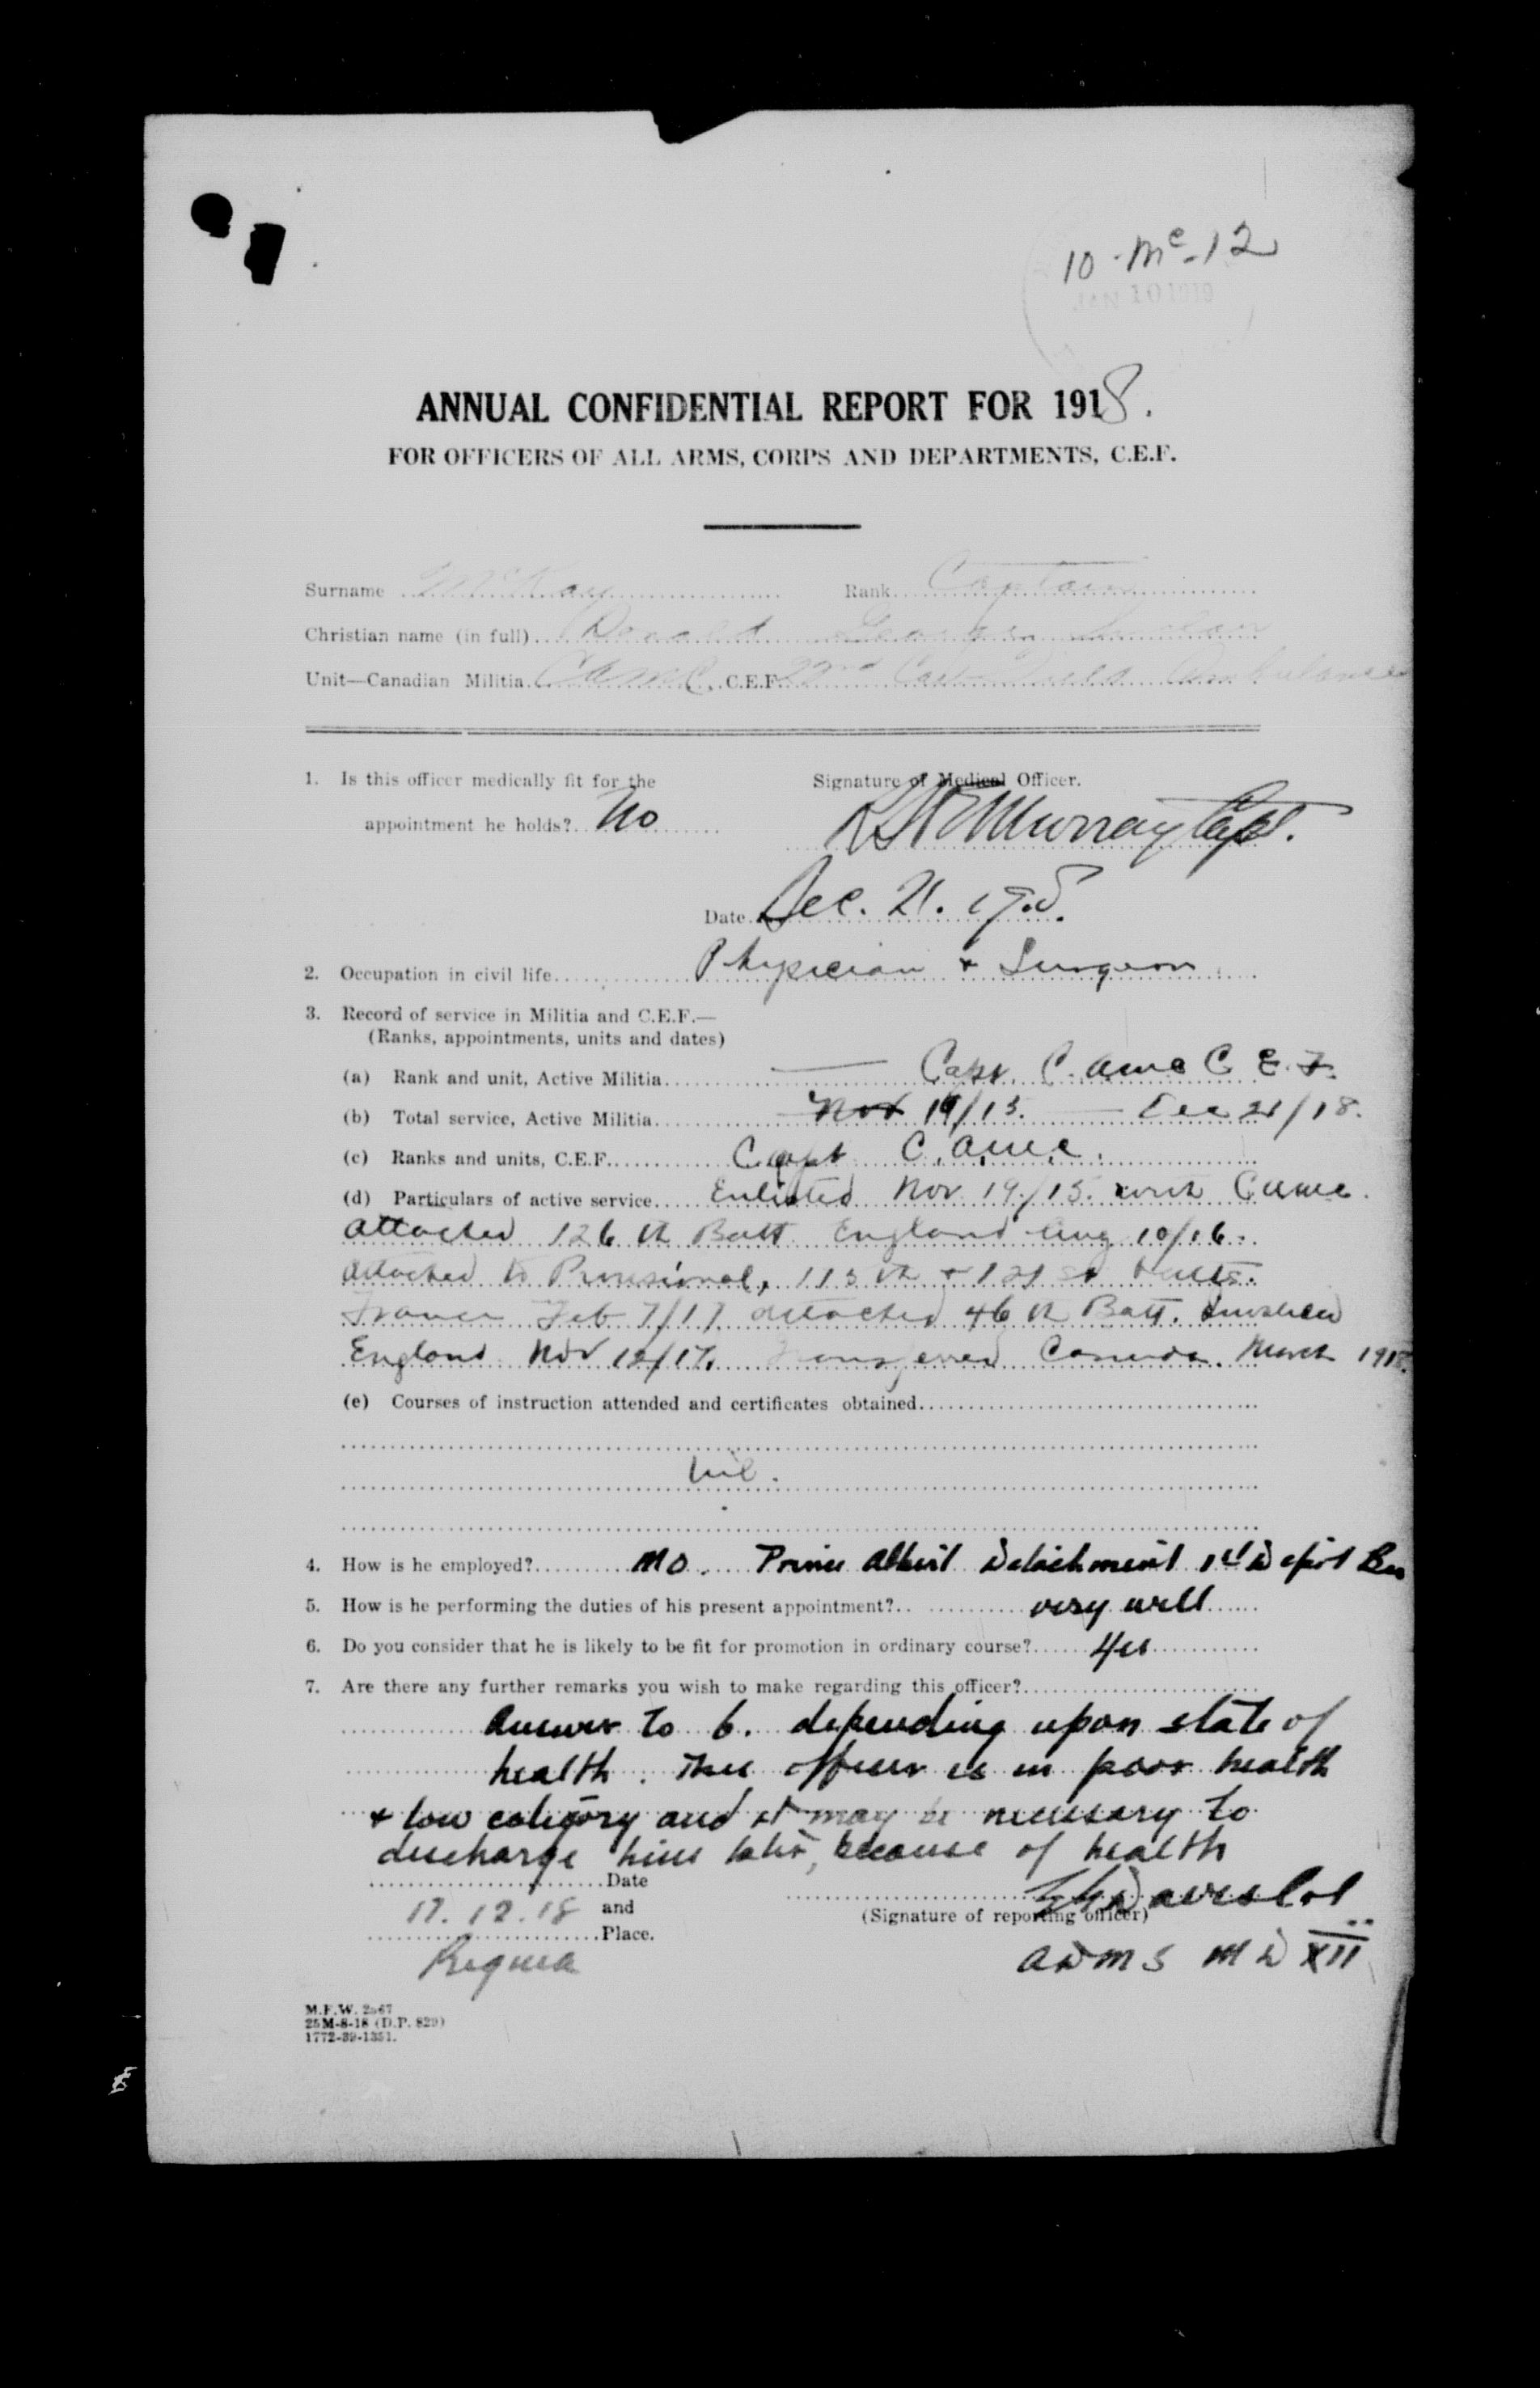 10-Mc-12
JAN 10 1919
ANNUAL CONFIDENTIAL REPORT FOR 1918.
FOR OFFICERS OF ALL ARMS, CORPS AND DEPARTMENTS, C.E.F.
Surname McKay Rank Captain
Christian name (in full) Donald George
Unit—Canadian Militia CAMC, C.E.F. 22nd Field Ambulance
1. Is this officer medically fit for the Signature of Medical Officer.
appointment he holds? No Murray Capt.
Date Dec. 21. 1918.
2. Occupation in civil life Physician + Surgeon
3. Record of service in Militia and C.E.F.—
(Ranks, appointments, units and dates)
(a) Rank and unit, Active Militia — Capt. C.A.M.C. C.E.F.
(b) Total service, Active Militia Nov 19/15. — Dec 21/18.
(c) Ranks and units, C.E.F. Capt C.A.M.C.
(d) Particulars of active service Enlisted Nov 19/15. with CAMC.
attached 126th Batt England Aug 10/16.
attached to Provisional, 113th + 121st Batts.
France Feb 7/17 attached 46th Batt. Invalided
England Nov 12/17. Transferred Canada. March 1918.
(e) Courses of instruction attended and certificates obtained
Nil.
4. How is he employed? MO. Prince Albert Detachment 1st Depot Bn
5. How is he performing the duties of his present appointment? very well
6. Do you consider that he is likely to be fit for promotion in ordinary course? Yes
7. Are there any further remarks you wish to make regarding this officer?
Answer to 6. depending upon state of
health. This officer is in poor health
+ low category and it may be necessary to
discharge him later, because of health
Date
17.12.18 and Davis Col
Place. (Signature of reporting officer)
Regina ADMS MD XII
M.F.W. 2567
25M-8-18 (D.P. 829)
1772-39-1351.